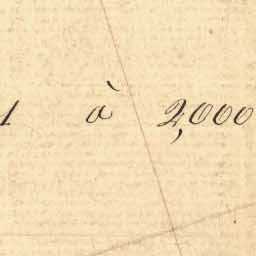 1 à 2,000